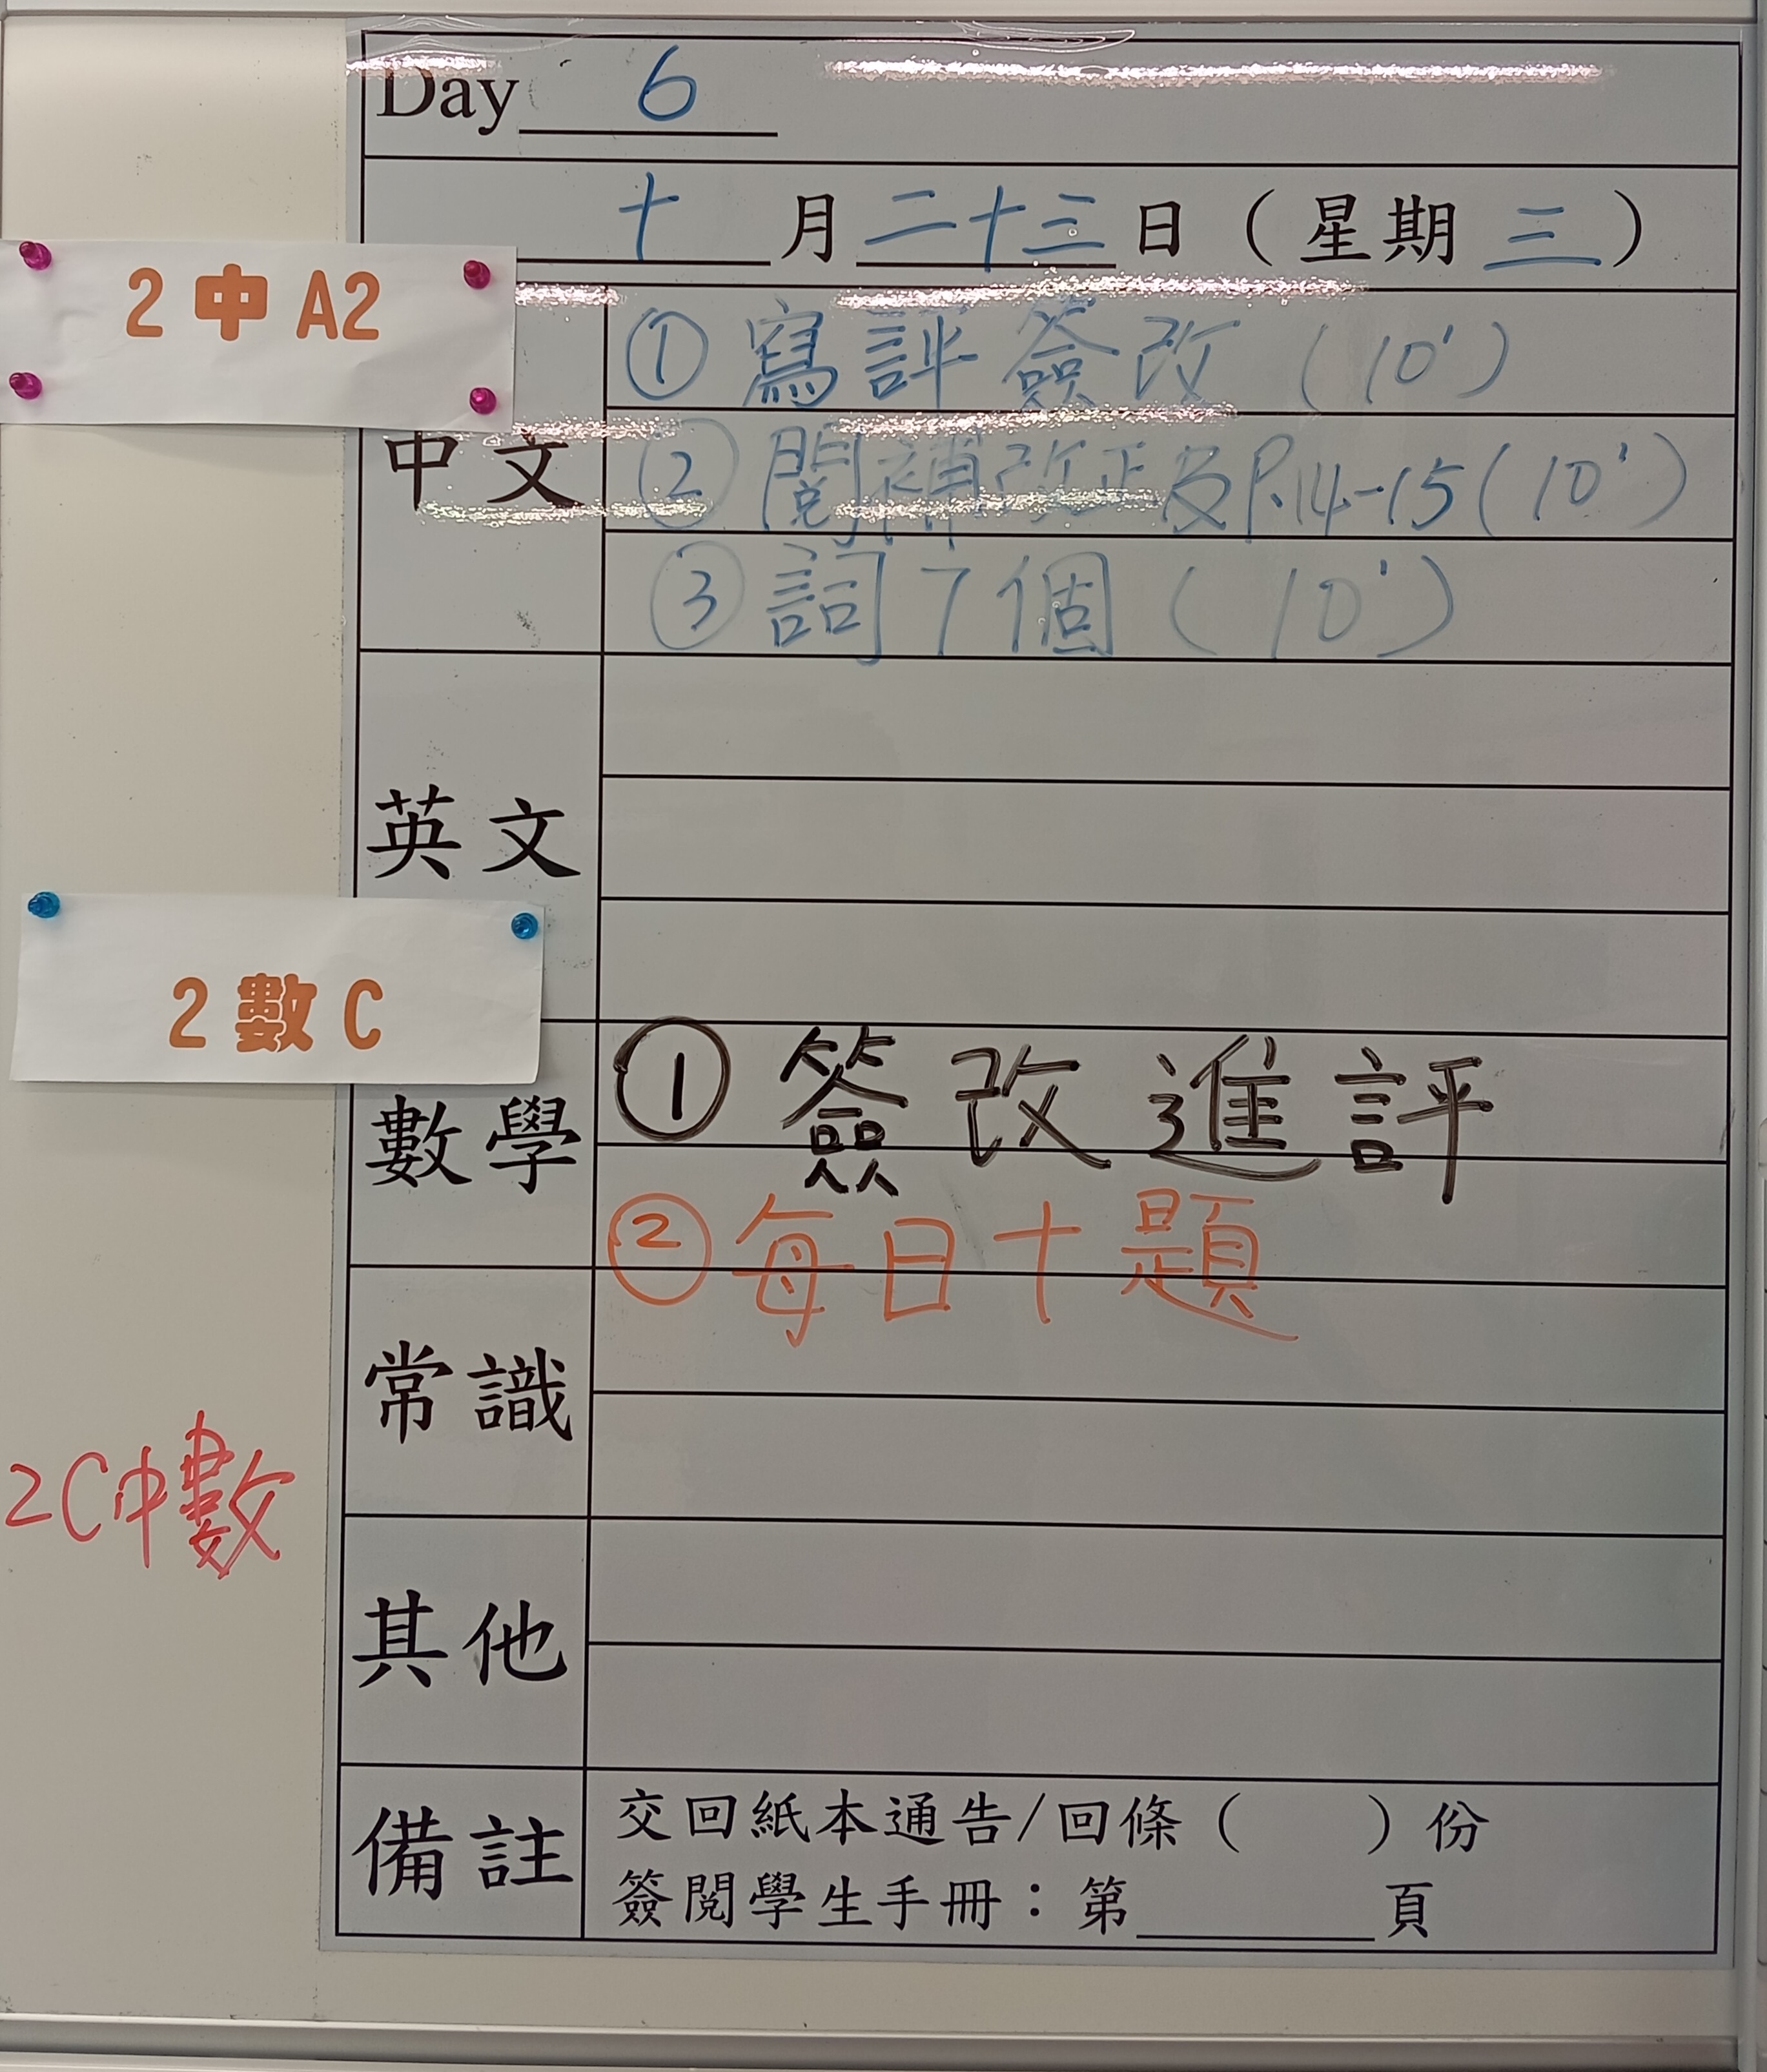 Day 6
十月二十三日（星期三）
2 中 A2
中文
① 寫評簽改 (10')
② 閱補改正及P.14-15 (10')
③ 詞7個 (10')
英文
2 數 C
數學
① 簽改進評
② 每日十題
常識
2C中數
其他
備註
交回紙本通告/回條（　　）份
簽閱學生手冊：第______頁